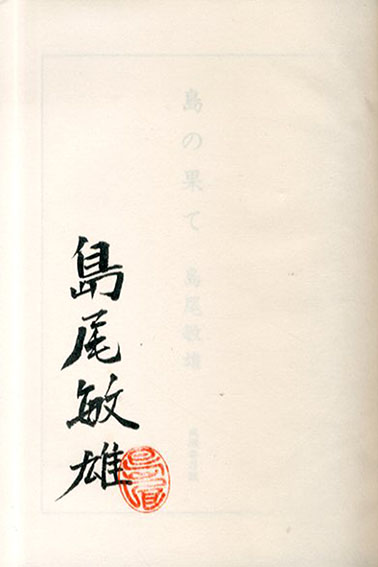 島の果て 島尾敏雄
島尾敏雄